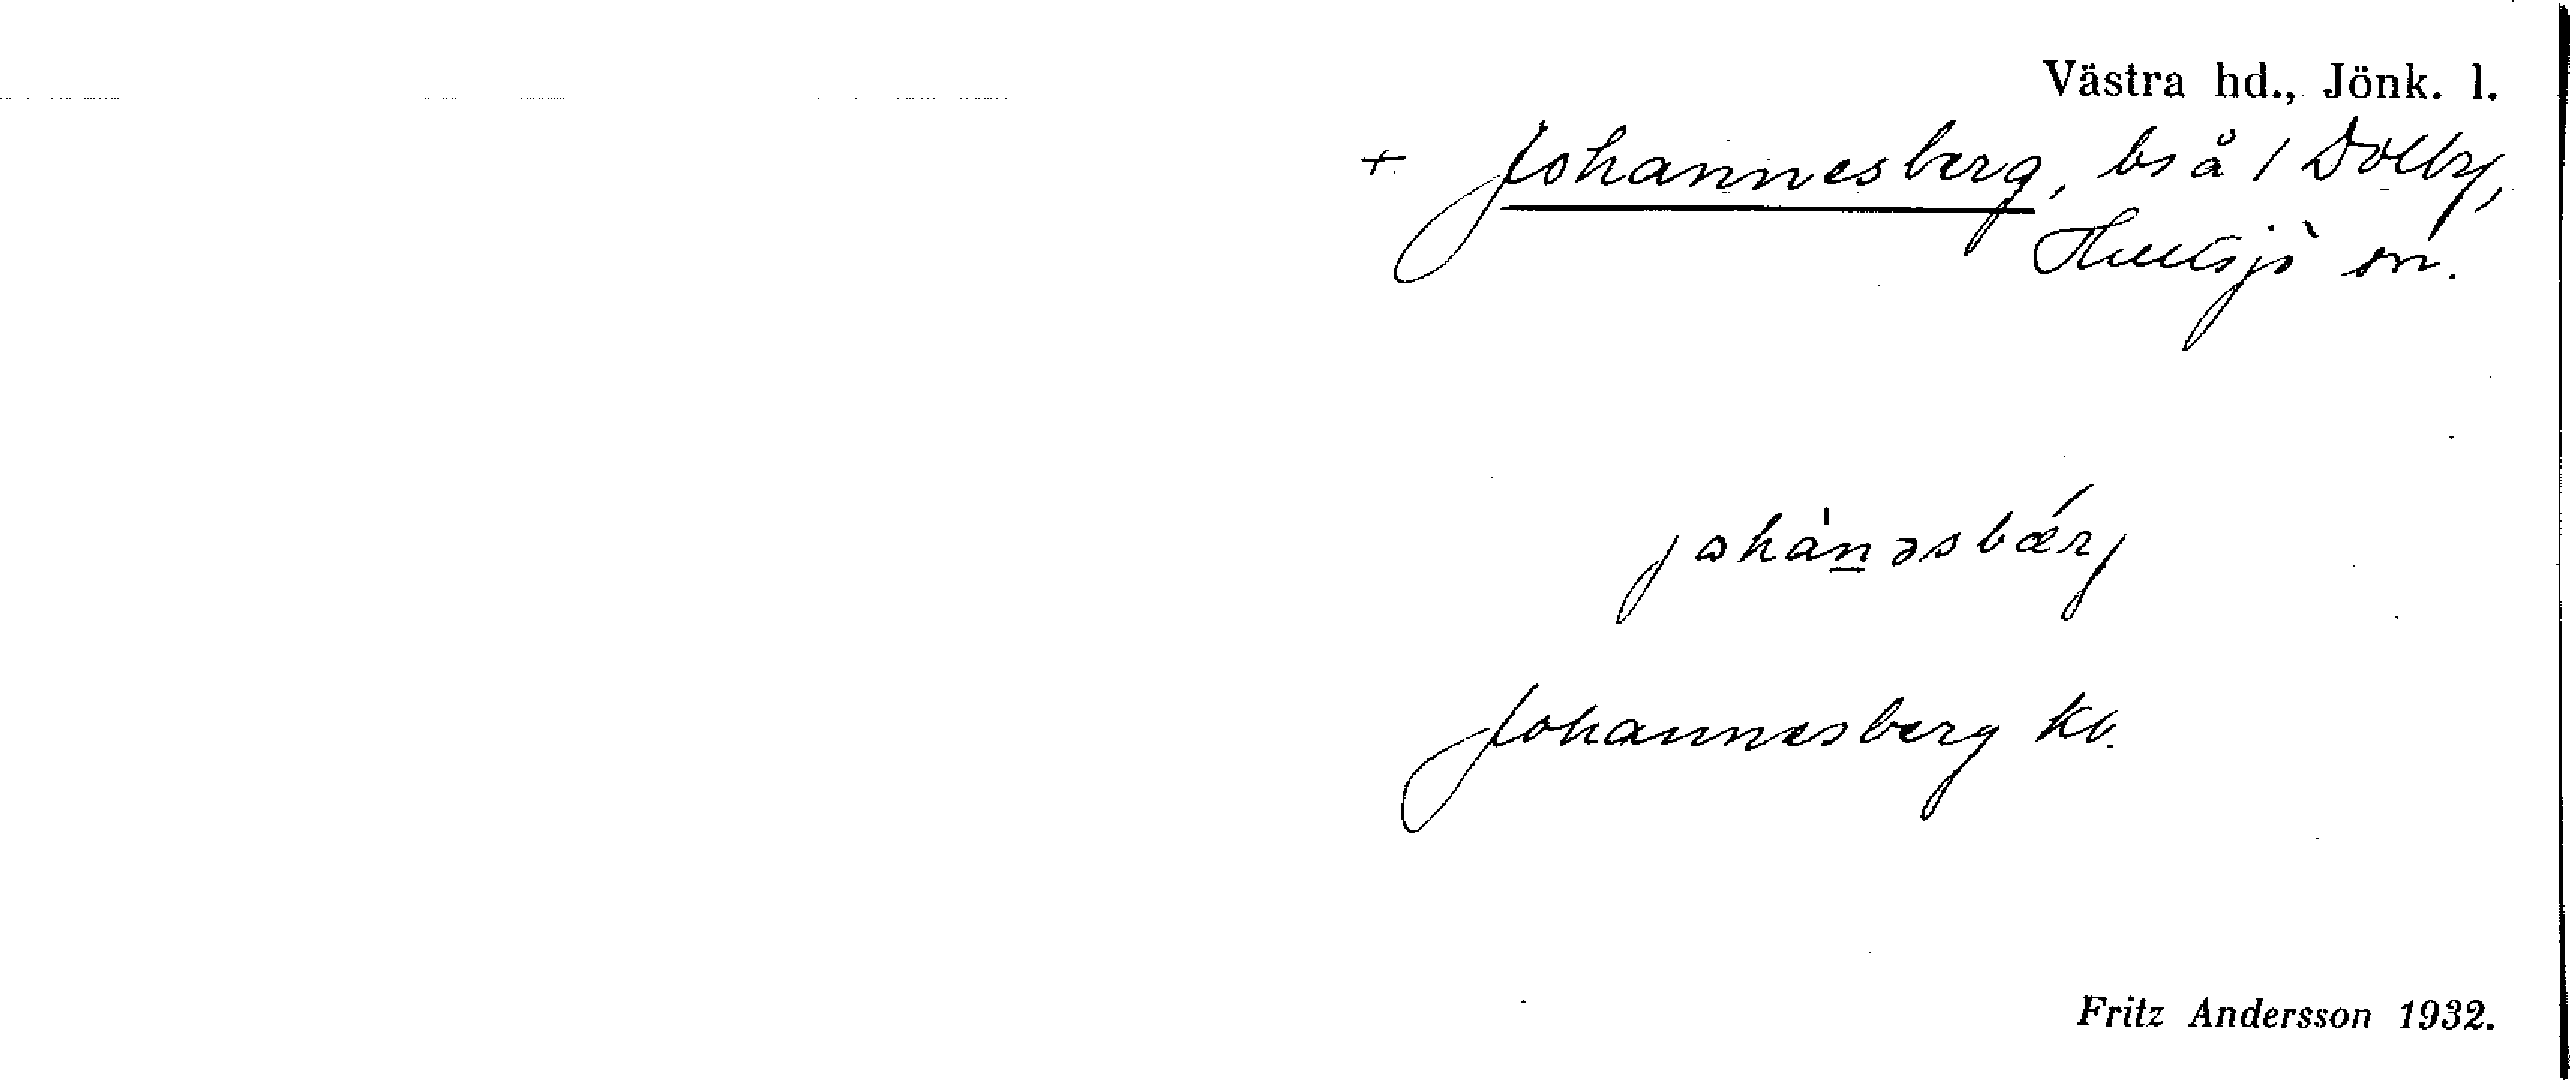 Västra hd., Jönk. l.
+ Johannesberg, bs å 1 Dolby,
Hultsjö sn.
johànəsbǽrj
Johannesberg kb.
Fritz Andersson 1932.